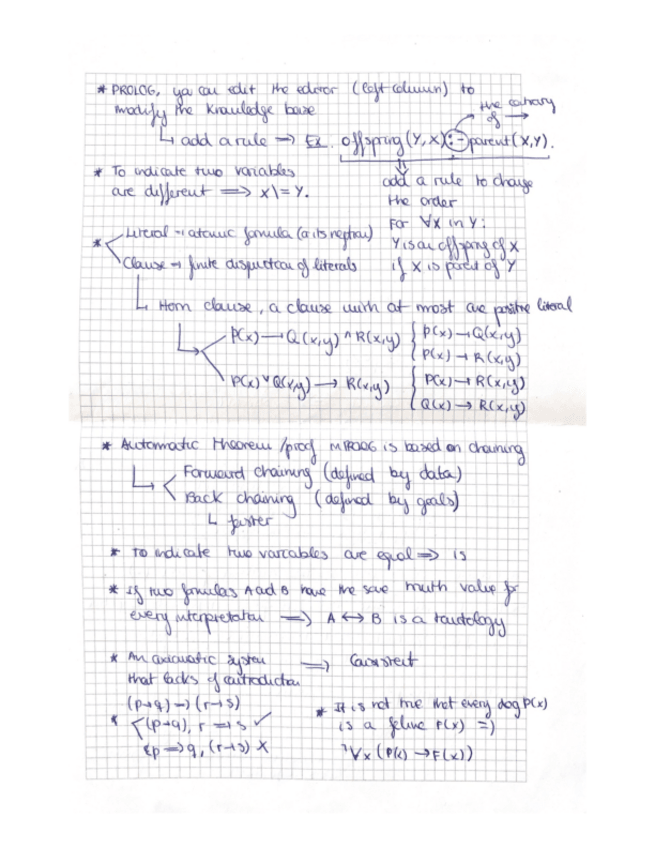 * PROLOG, you can edit the editor (left column) to
modify the knowledge base
the contrary
of →
↳ add a rule => Ex. offspring(Y, X) :- parent(X,Y).
* To indicate two variables
are different => X \= Y.
add a rule to change
the order
For ∀x in Y:
Y is an offspring of X
if X is parent of Y
* Literal → atomic formula (or its negation)
Clause → finite disjunction of literals
↳ Horn clause, a clause with at most one positive literal
P(x) → Q(x,y) ^ R(x,y) { P(x) → Q(x,y)
P(x) → R(x,y)
P(x) v Q(x,y) → R(x,y) { P(x) → R(x,y)
Q(x) → R(x,y)
* Automatic theorem/proof in PROLOG is based on chaining
↳ < Forward chaining (defined by data)
Back chaining (defined by goals)
↳ faster
* To indicate two variables are equal => is
* If two formulas A and B have the same truth value for
every interpretation => A ↔ B is a tautology
* An axiomatic system
that lacks of contradiction => Consistent
(p→q) → (r→s)
* {(p→q), r => s ✓
{p => q, (r→s) X
* It is not true that every dog P(x)
is a feline F(x) =>
¬∀x (P(x) → F(x))